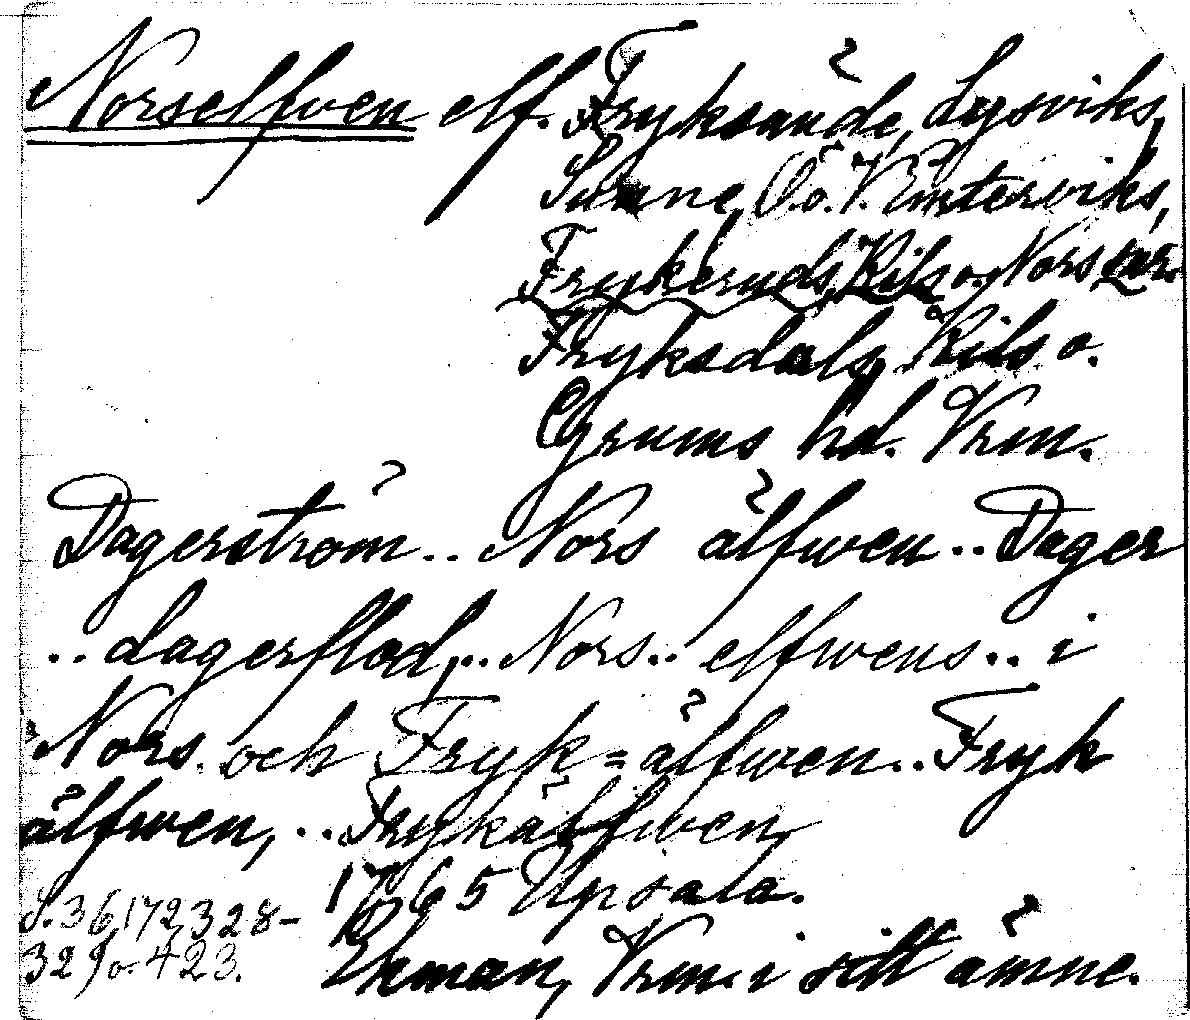 Norselfven elf. Fryksände, Lysviks,
Sunne, Ö. o. V. Emterviks,
Frykeruds, Kils o. Nors snr.
Fryksdals, Kils o.
Grums hd. Vrm.
Dagerström .. Nors älfwen .. Dager
.. dagerflod, .. Nors .. elfwens .. i
Nors och Fryk=älfwen .. Fryk
älfwen, .. Frykälfwen,
1765 Upsala.
S. 36, 172, 328-
329 o. 423.
Ekman, Vrm. i sitt ämne.